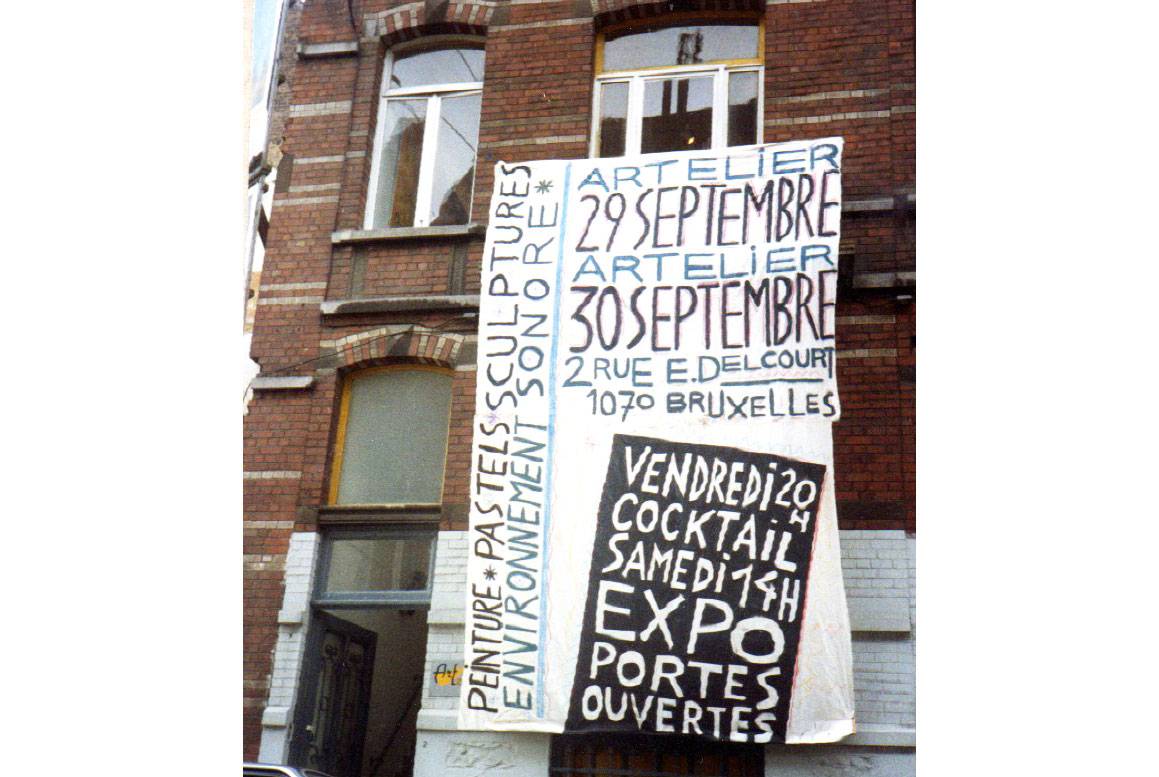 ARTELiER
29 SEPTEMBRE
ARTELiER
30 SEPTEMBRE
2 RUE E. DELCOURT
1070 BRUXELLES
PEINTURE * PASTELS * SCULPTURES
ENVIRONNEMENT SONORE *
VENDREDi 20H
COCKTAiL
SAMEDi 14H
EXPO
PORTES
OUVERTES
Art